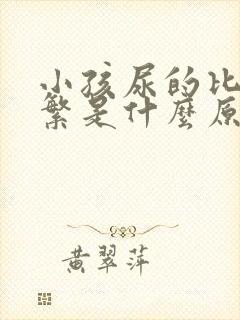 小孩尿的比
繁是什麼原
黄翠萍